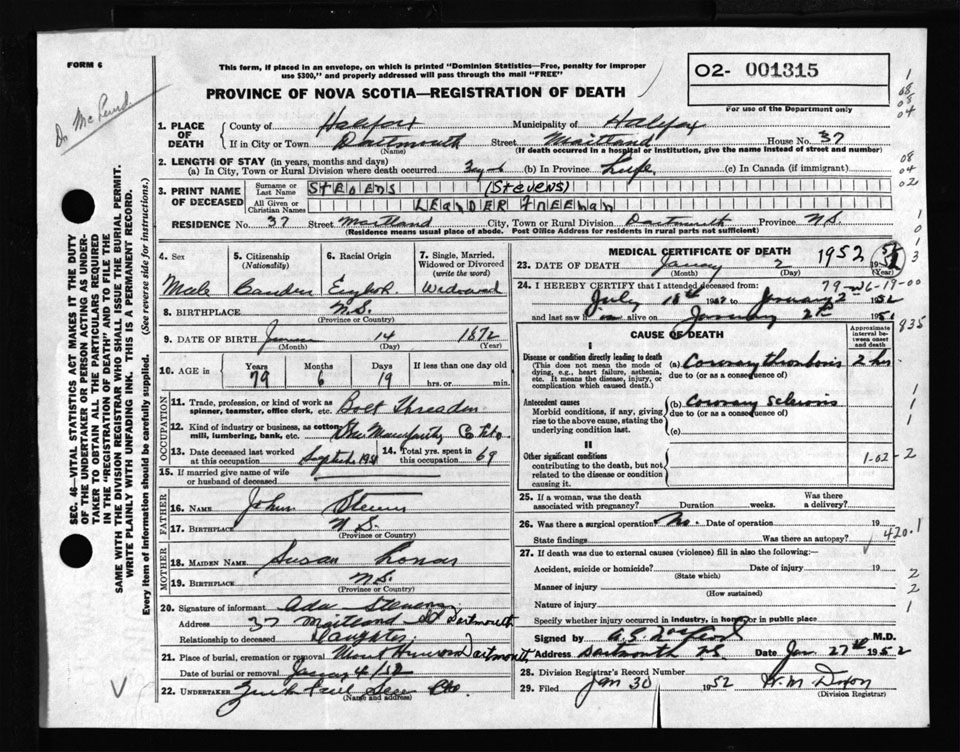 FORM 6
This form, if placed in an envelope, on which is printed "Dominion Statistics—Free, penalty for improper
use $300," and properly addressed will pass through the mail "FREE"
PROVINCE OF NOVA SCOTIA—REGISTRATION OF DEATH
O2- 001315
For use of the Department only
1. PLACE OF DEATH
County of Halifax Municipality of Halifax
If in City or Town Dartmouth Street Maitland House No. 37
(Name) (If death occurred in a hospital or institution, give the name instead of street and number)
2. LENGTH OF STAY (in years, months and days)
(a) In City, Town or Rural Division where death occurred (b) In Province Life (c) In Canada (if immigrant)
3. PRINT NAME OF DECEASED
Surname or Last Name STEVENS (Stevens)
All Given or Christian Names LEANDER FREEMAN
RESIDENCE No. 37 Street Maitland City, Town or Rural Division Dartmouth Province N.S.
(Residence means usual place of abode. Post Office Address for residents in rural parts not sufficient)
4. Sex Male
5. Citizenship (Nationality)
6. Racial Origin
7. Single, Married, Widowed or Divorced (write the word) Widowed
8. BIRTHPLACE N.S.
(Province or Country)
9. DATE OF BIRTH 14 1872
(Month) (Day) (Year)
10. AGE in Years 79 Months 6 Days 19 If less than one day old hrs. or min.
OCCUPATION
11. Trade, profession, or kind of work as spinner, teamster, office clerk, etc. Bolt Threader
12. Kind of industry or business, as cotton mill, lumbering, bank, etc.
13. Date deceased last worked at this occupation
14. Total yrs. spent in this occupation 69
15. If married give name of wife or husband of deceased
FATHER
16. NAME John Stevens
17. BIRTHPLACE N.S.
(Province or Country)
MOTHER
18. MAIDEN NAME Susan
19. BIRTHPLACE N.S.
(Province or Country)
20. Signature of informant Ada Stevens
Address 37 Maitland St Dartmouth
Relationship to deceased Daughter
21. Place of burial, cremation or removal Mount Dartmouth
Date of burial or removal January 4/52
22. UNDERTAKER
(Name and address)
MEDICAL CERTIFICATE OF DEATH
23. DATE OF DEATH January 2 1952
(Month) (Day) (Year)
24. I HEREBY CERTIFY that I attended deceased from:
July to January 2 1952
and last saw h on January 2
CAUSE OF DEATH
Approximate interval between onset and death
I
Disease or condition directly leading to death (a) Coronary thrombosis 2 hrs
(This does not mean the mode of dying, e.g., heart failure, asthenia, etc. It means the disease, injury, or complication which caused death.)
due to (or as a consequence of)
Antecedent causes (b) Coronary Sclerosis
Morbid conditions, if any, giving rise to the above cause, stating the underlying condition last.
due to (or as a consequence of)
(c)
II
Other significant conditions contributing to the death, but not related to the disease or condition causing it.
1-02-2
25. If a woman, was the death associated with pregnancy? Duration weeks. Was there a delivery?
26. Was there a surgical operation? No. Date of operation 19
State findings Was there an autopsy?
420.1
27. If death was due to external causes (violence) fill in also the following:—
Accident, suicide or homicide? Date of injury 19
(State which)
Manner of injury
(How sustained)
Nature of injury
Specify whether injury occurred in industry, in home or in public place
Signed by M.D.
Address Dartmouth N.S. Date Jan. 27th 1952
28. Division Registrar's Record Number
29. Filed Jan 30 1952 W. M. Dixon
(Division Registrar)
SEC. 46—VITAL STATISTICS ACT MAKES IT THE DUTY
OF THE UNDERTAKER OR PERSON ACTING AS UNDERTAKER
TO OBTAIN ALL THE PARTICULARS REQUIRED
IN THE "REGISTRATION OF DEATH" AND TO FILE THE
SAME WITH THE DIVISION REGISTRAR WHO SHALL ISSUE THE BURIAL PERMIT.
WRITE PLAINLY WITH UNFADING INK. THIS IS A PERMANENT RECORD.
Every item of information should be carefully supplied. (See reverse side for instructions.)